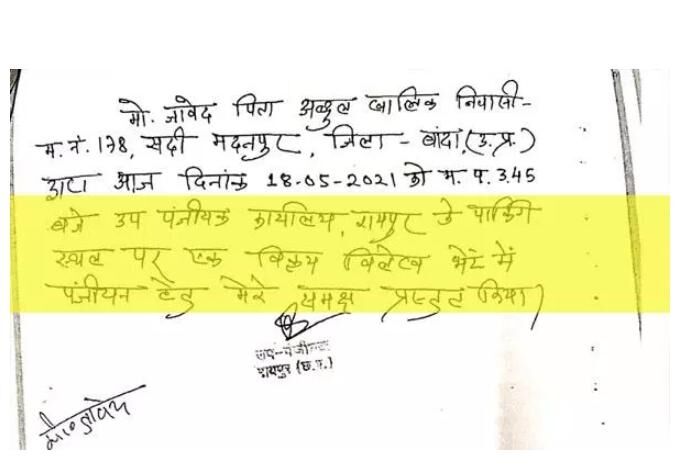 मो. जावेद पिता अब्दुल खालिक निवासी-
म. नं. 178, सदी मदनपुर, जिला - बांदा (उ.प्र.)
द्वारा आज दिनांक 18-05-2021 को म.प. 3.45
बजे उप पंजीयक कार्यालय, रायपुर के पार्किंग
स्थल पर एक विक्रय विलेख मेरे
पंजीयन हेतु मेरे समक्ष प्रस्तुत किया।
उप-पंजीयक
रायपुर (छ.ग.)